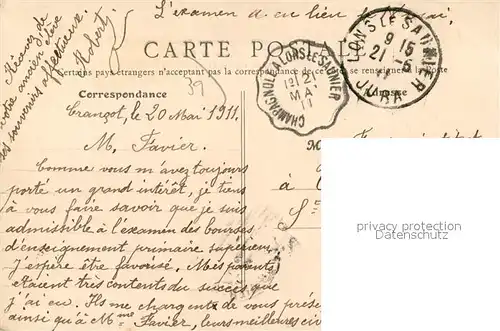 L'examen a eu lieu
Recevez de
votre ancien élève
ses souvenirs affectueux.
Robert.
CARTE POSTALE
Certains pays étrangers n'acceptant pas la correspondance de ce côté, se renseigner à la poste
39
Correspondance
Adresse
CHAMPAGNOLE A LONS-LE-SAUNIER
21
MAI
11
LONS LE SAUNIER
9 15
21 -5
11
JURA
Crançot, le 20 Mai 1911.
M. Favier.
Comme vous m'avez toujours
porté un grand intérêt, je tiens
à vous faire savoir que je suis
admissible à l'examen des bourses
d'enseignement primaire supérieur.
J'espère être favorisé. Mes parents
étaient très contents du succès que
j'ai eu. Ils me chargent de vous prése
ainsi qu'à Mme Favier, leurs meilleures ci
M
à
privacy protection
Datenschutz